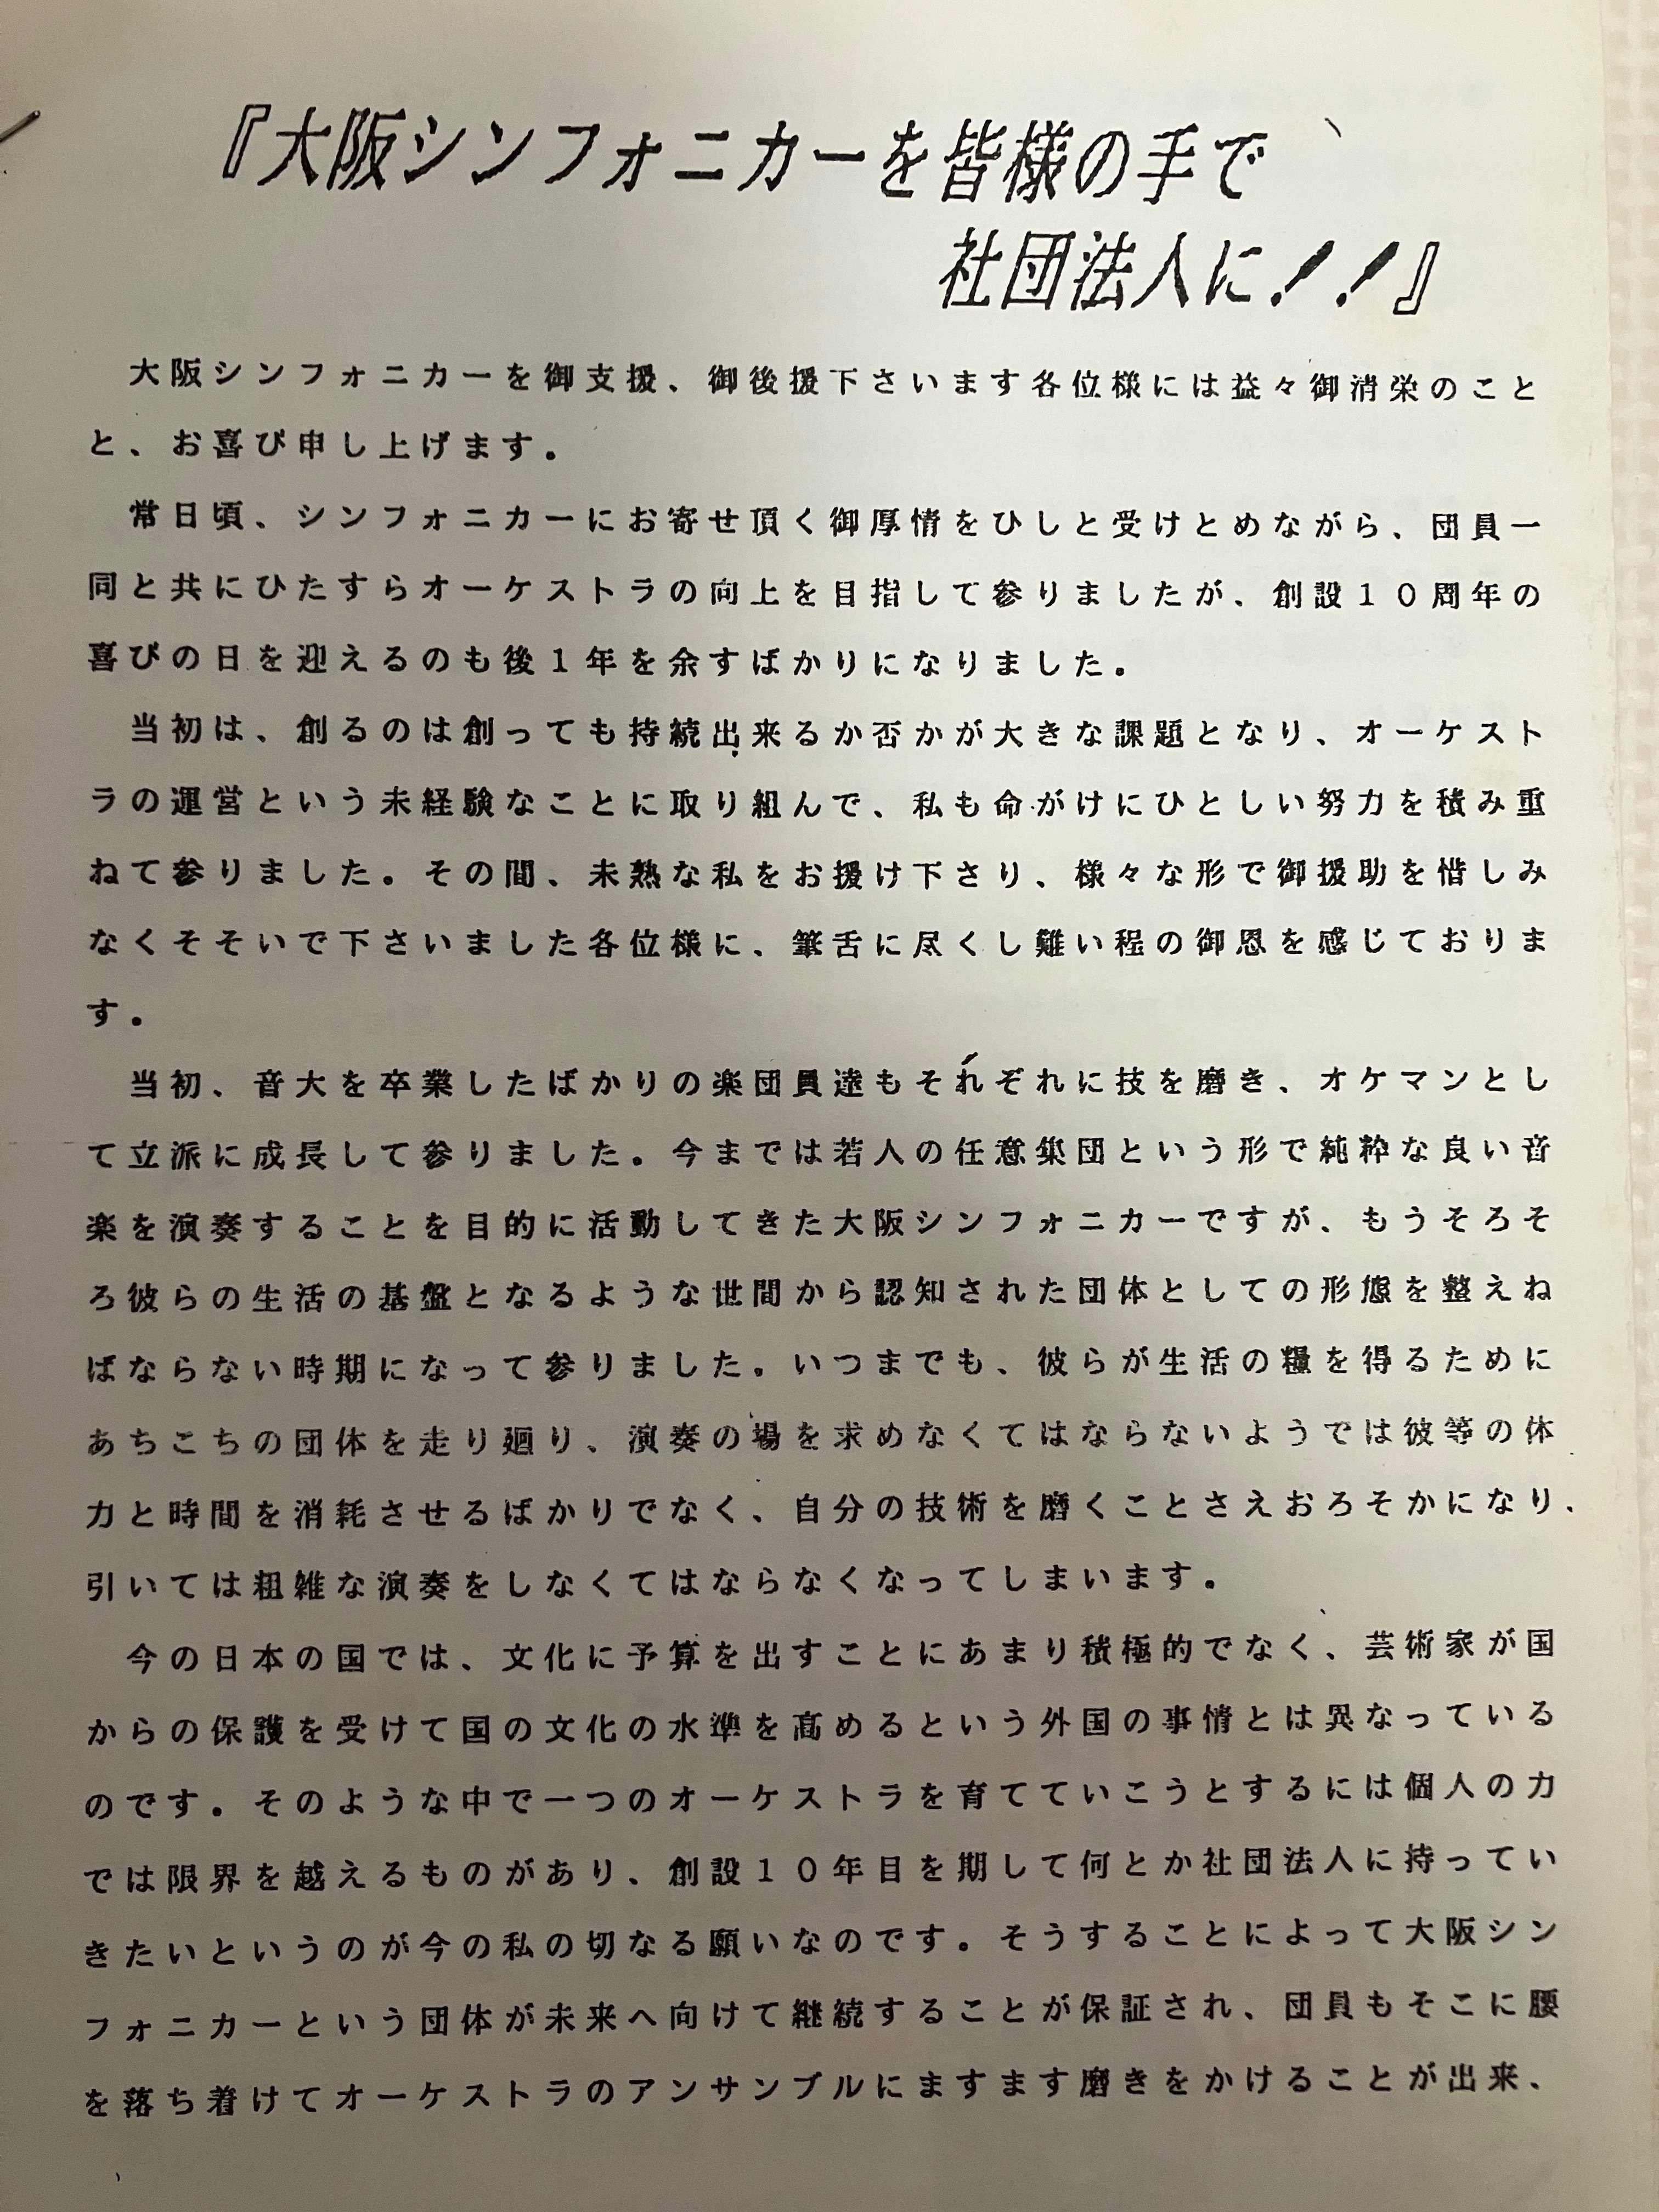 『大阪シンフォニカーを皆様の手で
社団法人に！！』
大阪シンフォニカーを御支援、御後援下さいます各位様には益々御清栄のこと
と、お喜び申し上げます。
常日頃、シンフォニカーにお寄せ頂く御厚情をひしと受けとめながら、団員一
同と共にひたすらオーケストラの向上を目指して参りましたが、創設１０周年の
喜びの日を迎えるのも後１年を余すばかりになりました。
当初は、創るのは創っても持続出来るか否かが大きな課題となり、オーケスト
ラの運営という未経験なことに取り組んで、私も命がけにひとしい努力を積み重
ねて参りました。その間、未熟な私をお援け下さり、様々な形で御援助を惜しみ
なくそそいで下さいました各位様に、筆舌に尽くし難い程の御恩を感じておりま
す。
当初、音大を卒業したばかりの楽団員達もそれぞれに技を磨き、オケマンとし
て立派に成長して参りました。今までは若人の任意集団という形で純粋な良い音
楽を演奏することを目的に活動してきた大阪シンフォニカーですが、もうそろそ
ろ彼らの生活の基盤となるような世間から認知された団体としての形態を整えね
ばならない時期になって参りました。いつまでも、彼らが生活の糧を得るために
あちこちの団体を走り廻り、演奏の場を求めなくてはならないようでは彼等の体
力と時間を消耗させるばかりでなく、自分の技術を磨くことさえおろそかになり、
引いては粗雑な演奏をしなくてはならなくなってしまいます。
今の日本の国では、文化に予算を出すことにあまり積極的でなく、芸術家が国
からの保護を受けて国の文化の水準を高めるという外国の事情とは異なっている
のです。そのような中で一つのオーケストラを育てていこうとするには個人の力
では限界を越えるものがあり、創設１０年目を期して何とか社団法人に持ってい
きたいというのが今の私の切なる願いなのです。そうすることによって大阪シン
フォニカーという団体が未来へ向けて継続することが保証され、団員もそこに腰
を落ち着けてオーケストラのアンサンブルにますます磨きをかけることが出来、